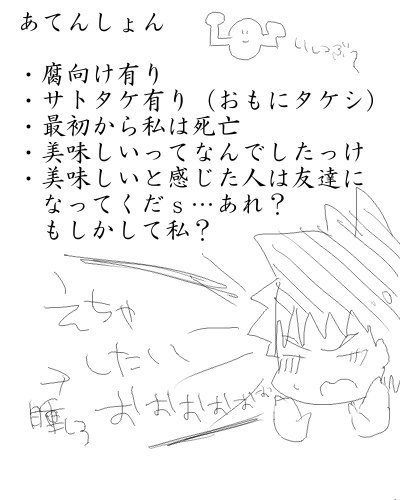 あてんしょん
・腐向け有り
・サトタケ有り（おもにタケシ）
・最初から私は死亡
・美味しいってなんでしたっけ
・美味しいと感じた人は友達に
なってくだｓ…あれ？
もしかして私？
えちゃ
したい
おおおおおお
睡しろ